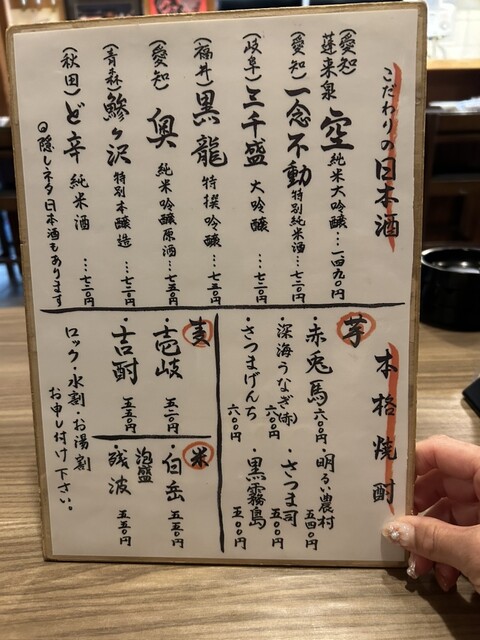 こだわりの日本酒
(愛知)蓬来泉 空 純米大吟醸…一四九〇円
(愛知)一念不動 特別純米酒…七二〇円
(岐阜)三千盛 大吟醸 …七二〇円
(福井)黒龍 特撰吟醸…七五〇円
(愛知)奥 純米吟醸原酒…七五〇円
(青森)鰺ヶ沢 特別本醸造…七二〇円
(秋田)ど辛 純米酒 …七二〇円
◎隠しネタ日本酒もあります
本格焼酎
芋
・赤兎馬 六〇〇円
・明るい農村 五四〇円
・深海うなぎ(赤) 六〇〇円
・さつま司 五〇〇円
・さつまげんち 六〇〇円
・黒霧島 五〇〇円
麦
・壱岐 五二〇円
・吉酎 五五〇円
米
・白岳 五五〇円
泡盛
・残波 五五〇円
ロック・水割・お湯割
お申し付け下さい。